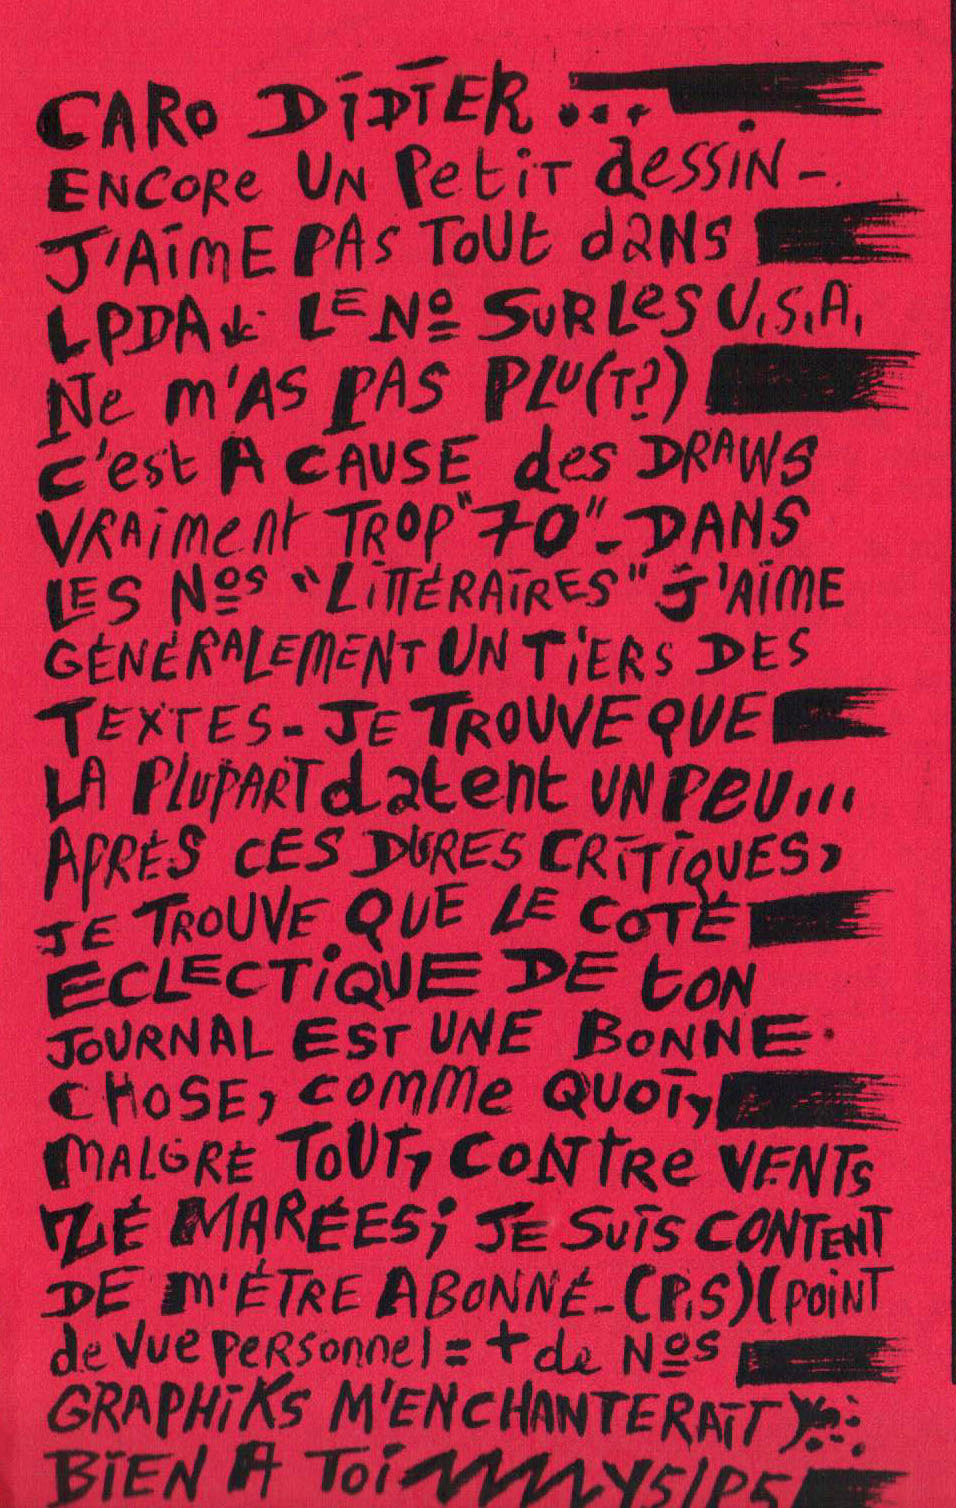 CARO DIDIER ...
ENCORE UN PETIT DESSIN -
J'AIME PAS TOUT DANS
LPDA LE Nº SUR LES U.S.A.
NE M'AS PAS PLU(T?)
C'EST A CAUSE DES DRAWS
VRAIMENT TROP "70" - DANS
LES Nºs "LITTÉRAIRES" J'AIME
GÉNÉRALEMENT UN TIERS DES
TEXTES - JE TROUVE QUE
LA PLUPART DATENT UN PEU...
APRÈS CES DURES CRITIQUES,
JE TROUVE QUE LE COTÉ
ECLECTIQUE DE TON
JOURNAL EST UNE BONNE
CHOSE, COMME QUOI,
MALGRÉ TOUT, CONTRE VENTS
ZÉ MARÉES; JE SUIS CONTENT
DE M'ÊTRE ABONNÉ - (P.S) (POINT
DE VUE PERSONNEL = + DE Nºs
GRAPHIKS M'ENCHANTERAIT)
BIEN A TOI Y5/P5